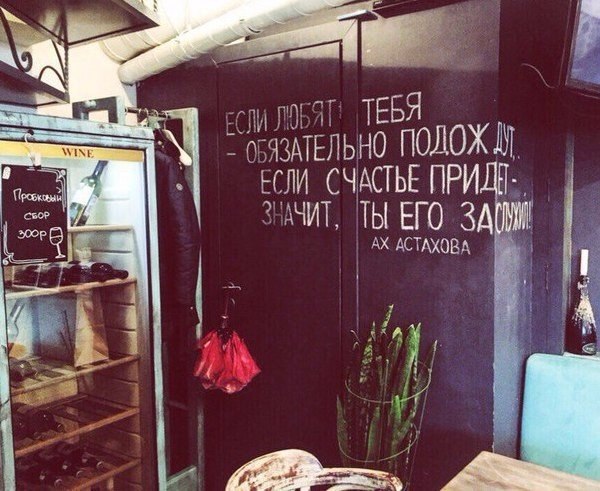 WINE
Пробковый
СБОР
300р
ЕСЛИ ЛЮБЯТ ТЕБЯ
- ОБЯЗАТЕЛЬНО ПОДОЖДУТ,
ЕСЛИ СЧАСТЬЕ ПРИДЕТ -
ЗНАЧИТ, ТЫ ЕГО ЗАСЛУЖИЛ!
АХ АСТАХОВА